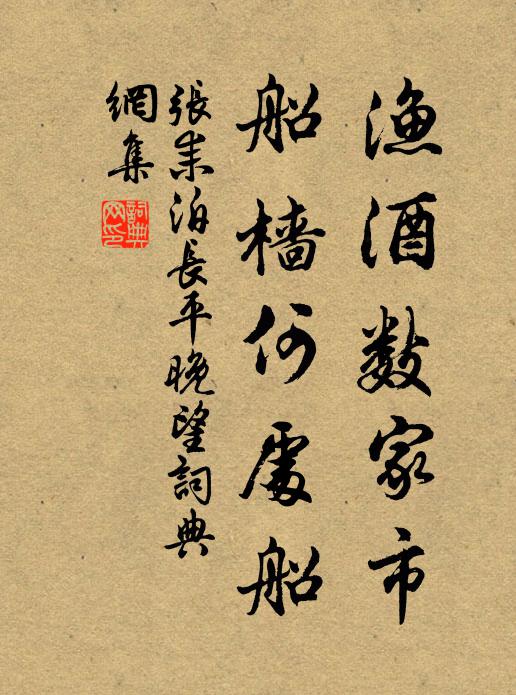 渔酒数家市
船樯何處船
張耒泊長平晚望詞典
網集
詞典
网印